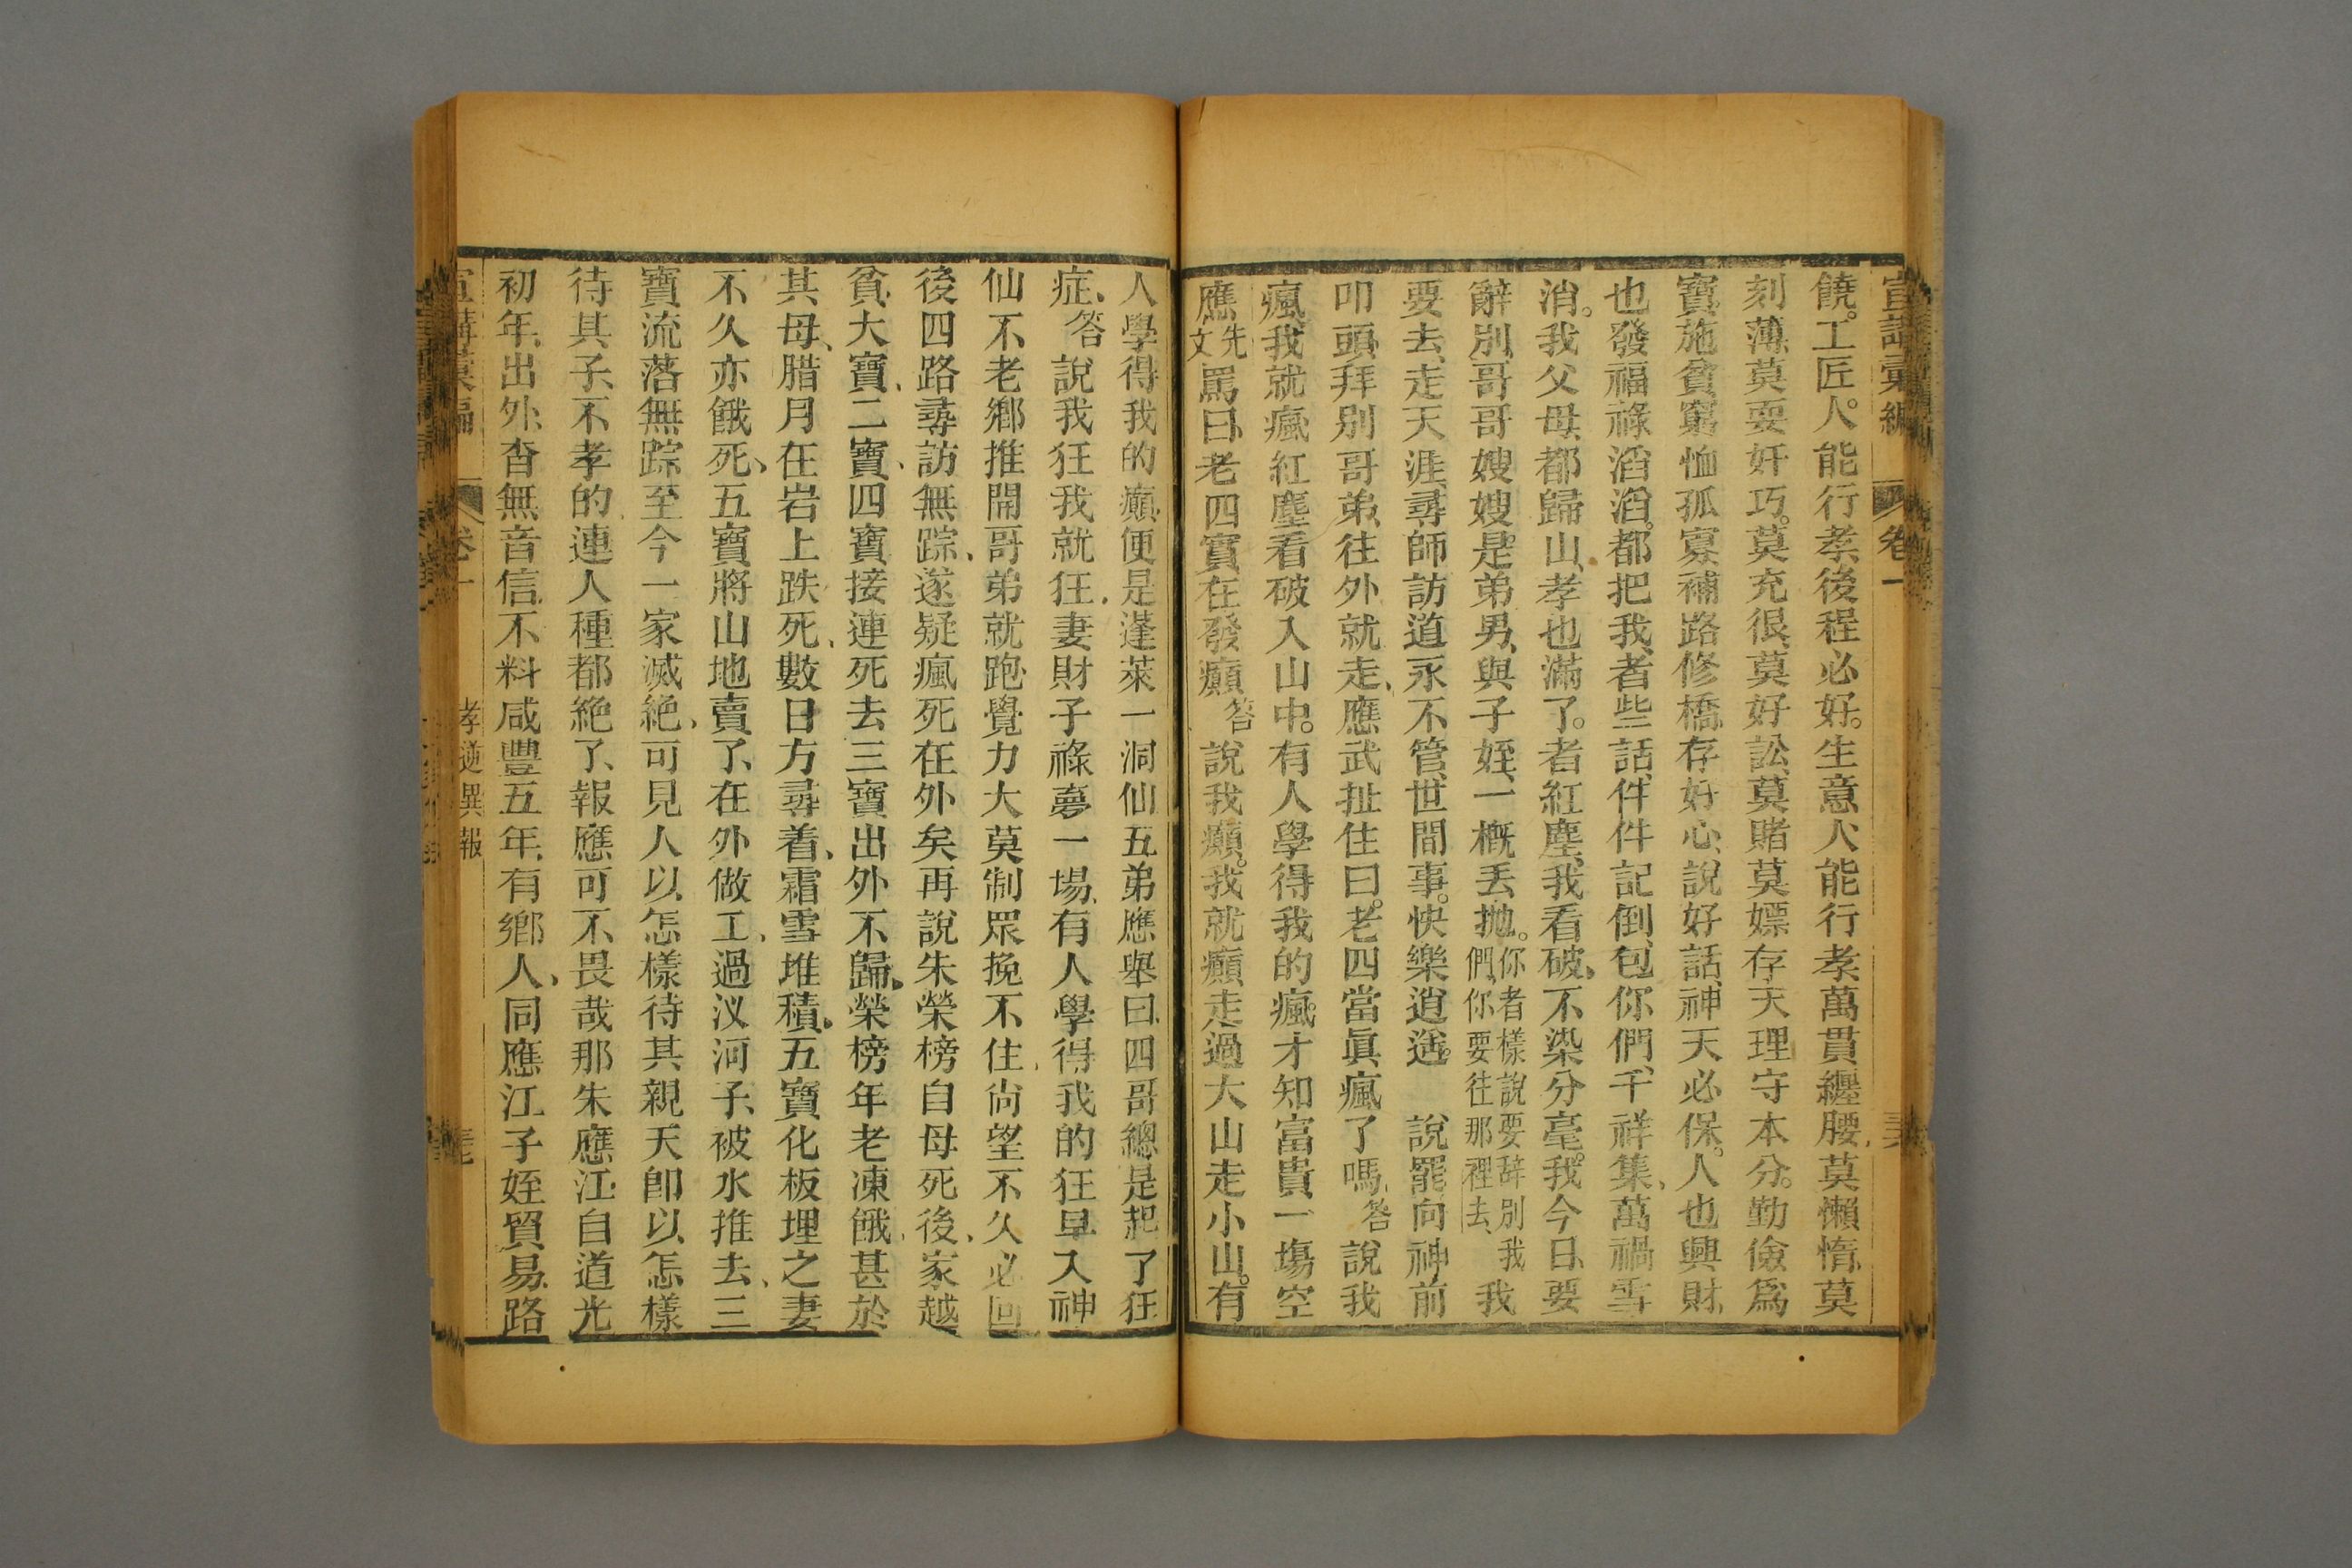 宣講彙編 卷一
饒。工匠人。能行孝、後程必好。生意人能行孝、萬貫纏腰、莫懶惰、莫
刻薄、莫耍奸巧。莫充很、莫好訟、莫賭莫嫖存天理守本分。勤儉爲
寶、施貧窮恤孤寡補路修橋、存好心、說好話、神天必保。人也興財、
也發福祿滔滔。都把我、者些話、件件記倒、包你們、千祥集、萬禍雪
消。我父母、都歸山、孝也滿了。者紅塵、我看破、不染分毫。我今日、要
辭別、哥哥嫂嫂。是弟男、與子姪、一概丟拋。你者樣說要辞別我們、你要往那裡去、我
要去、走天涯、尋師訪道、永不管、世間事。快樂逍遙。 說罷向神前
叩頭、拜別哥弟、往外就走、應武扯住曰。老四當眞瘋了嗎、答說我
瘋、我就瘋紅塵看破入山中。有人學得我的瘋、才知富貴一塲空
應文先罵曰、老四實在發癲 答說我癲。我就癲走過大山走小山。有
人學得我的癲、便是蓬萊一洞仙五弟應舉曰、四哥總是起了狂
症、答說我狂我就狂、妻財子祿夢一場、有人學得我的狂早入神
仙不老鄉推開哥弟就跑、覺力大莫制眾挽不住、尚望不久必回
後四路尋訪無踪、遂疑瘋死在外矣再說朱榮榜自母死後、家越
貧、大寶、二寶、四寶接連死去三寶出外不歸、榮榜年老凍餓、甚於
其母、腊月在岩上跌死、數日方尋着、霜雪堆積、五寶化板埋之妻
不久亦餓死、五寶將山地賣了、在外做工、過汊河子、被水推去、三
寶流落無踪至今一家滅絕、可見人以怎樣待其親天卽以怎樣
待其子、不孝的連人種都絕了、報應可不畏哉那朱應江、自道光
初年、出外、杳無音信、不料咸豐五年、有鄉人、同應江子姪貿易、路
宣講彙編 卷一 孝逆異報